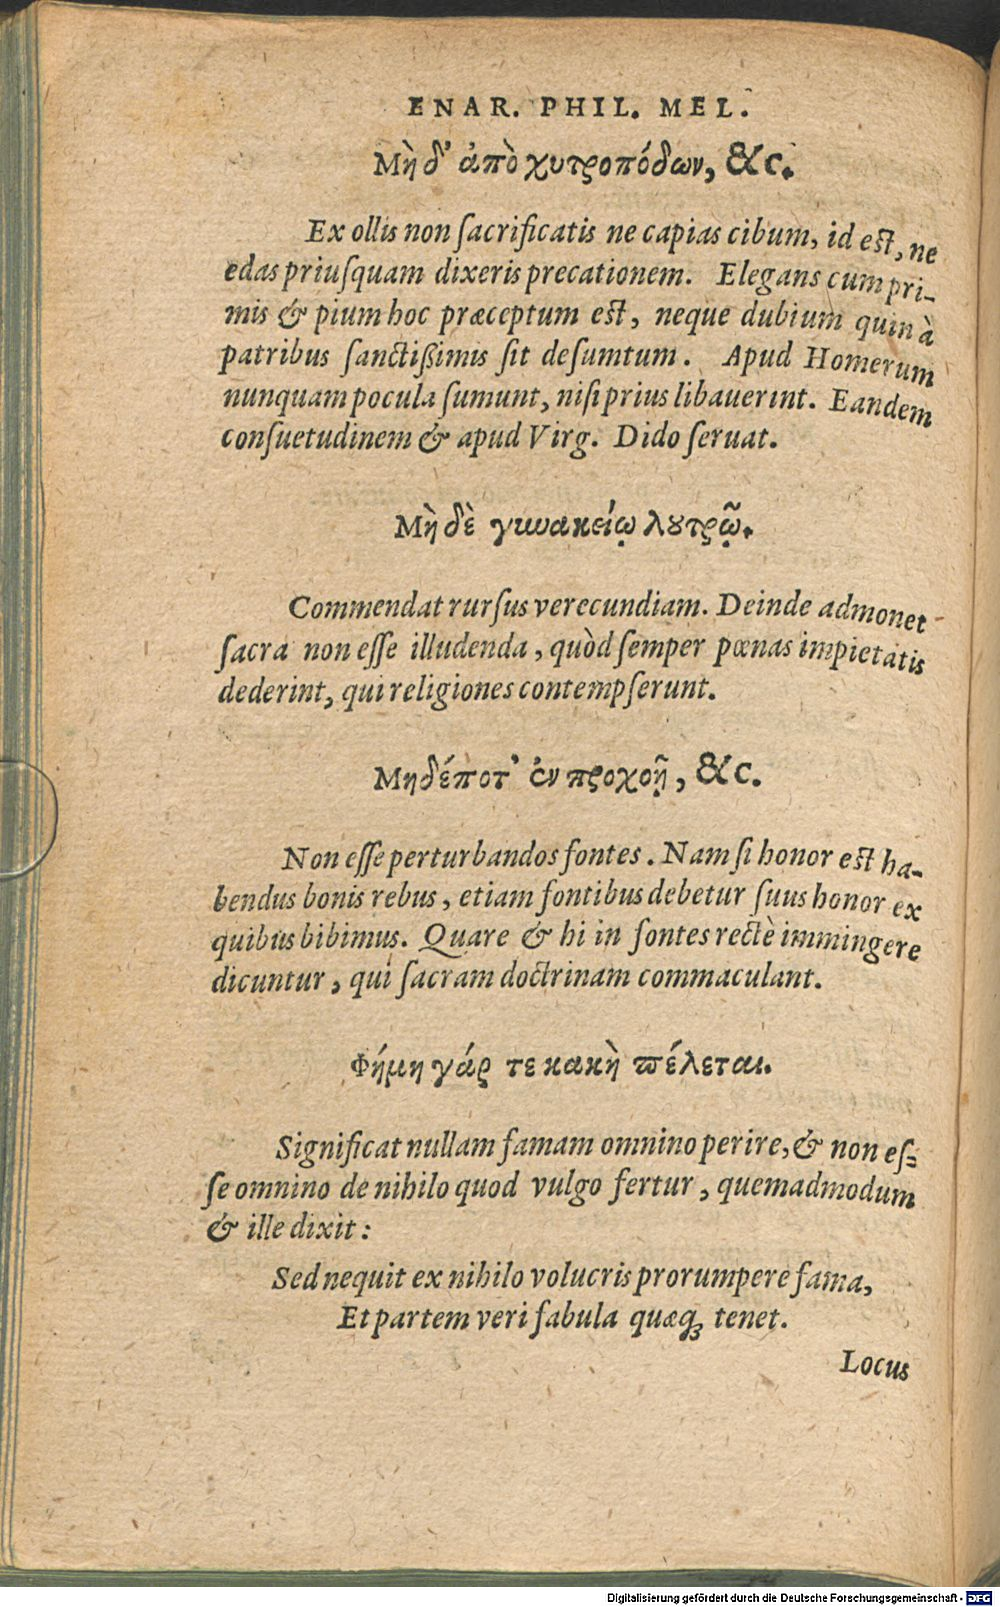 ENAR. PHIL. MEL.
Μὴ δ' ἀπὸ χυτροπόδων, &c.
Ex ollis non ſacrificatis ne capias cibum, id eſt, ne
edas priuſquam dixeris precationem. Elegans cum pri-
mis & pium hoc præceptum eſt, neque dubium quin à
patribus ſanctißimis ſit deſumtum. Apud Homerum
nunquam pocula ſumunt, niſi prius libauerint. Eandem
conſuetudinem & apud Virg. Dido ſeruat.
Μὴ δὲ γυναικείῳ λουτρῷ.
Commendat rurſus verecundiam. Deinde admonet
ſacra non eſſe illudenda, quòd ſemper pœnas impietatis
dederint, qui religiones contempſerunt.
Μηδέποτ' ἐν προχοῇ, &c.
Non eſſe perturbandos fontes. Nam ſi honor eſt ha-
bendus bonis rebus, etiam fontibus debetur ſuus honor ex
quibus bibimus. Quare & hi in fontes rectè immingere
dicuntur, qui ſacram doctrinam commaculant.
Φήμη γάρ τε κακὴ πέλεται.
Significat nullam famam omnino perire, & non eſ-
ſe omnino de nihilo quod vulgo fertur, quemadmodum
& ille dixit:
Sed nequit ex nihilo volucris prorumpere fama,
Et partem veri fabula quæq; tenet.
Locus
Digitalisierung gefördert durch die Deutsche Forschungsgemeinschaft - DFG